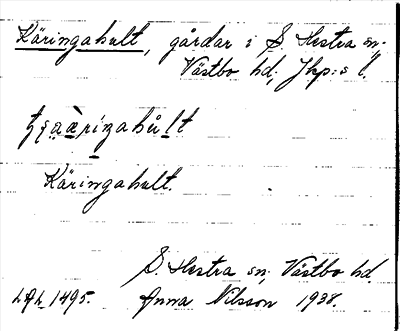 Käringahult, gårdar i S. Hestra sn;
Västbo hd; Jkp:s l.
Käringahult.
S. Hestra sn; Västbo hd.
LAL 1495. Anna Nilsson 1938.